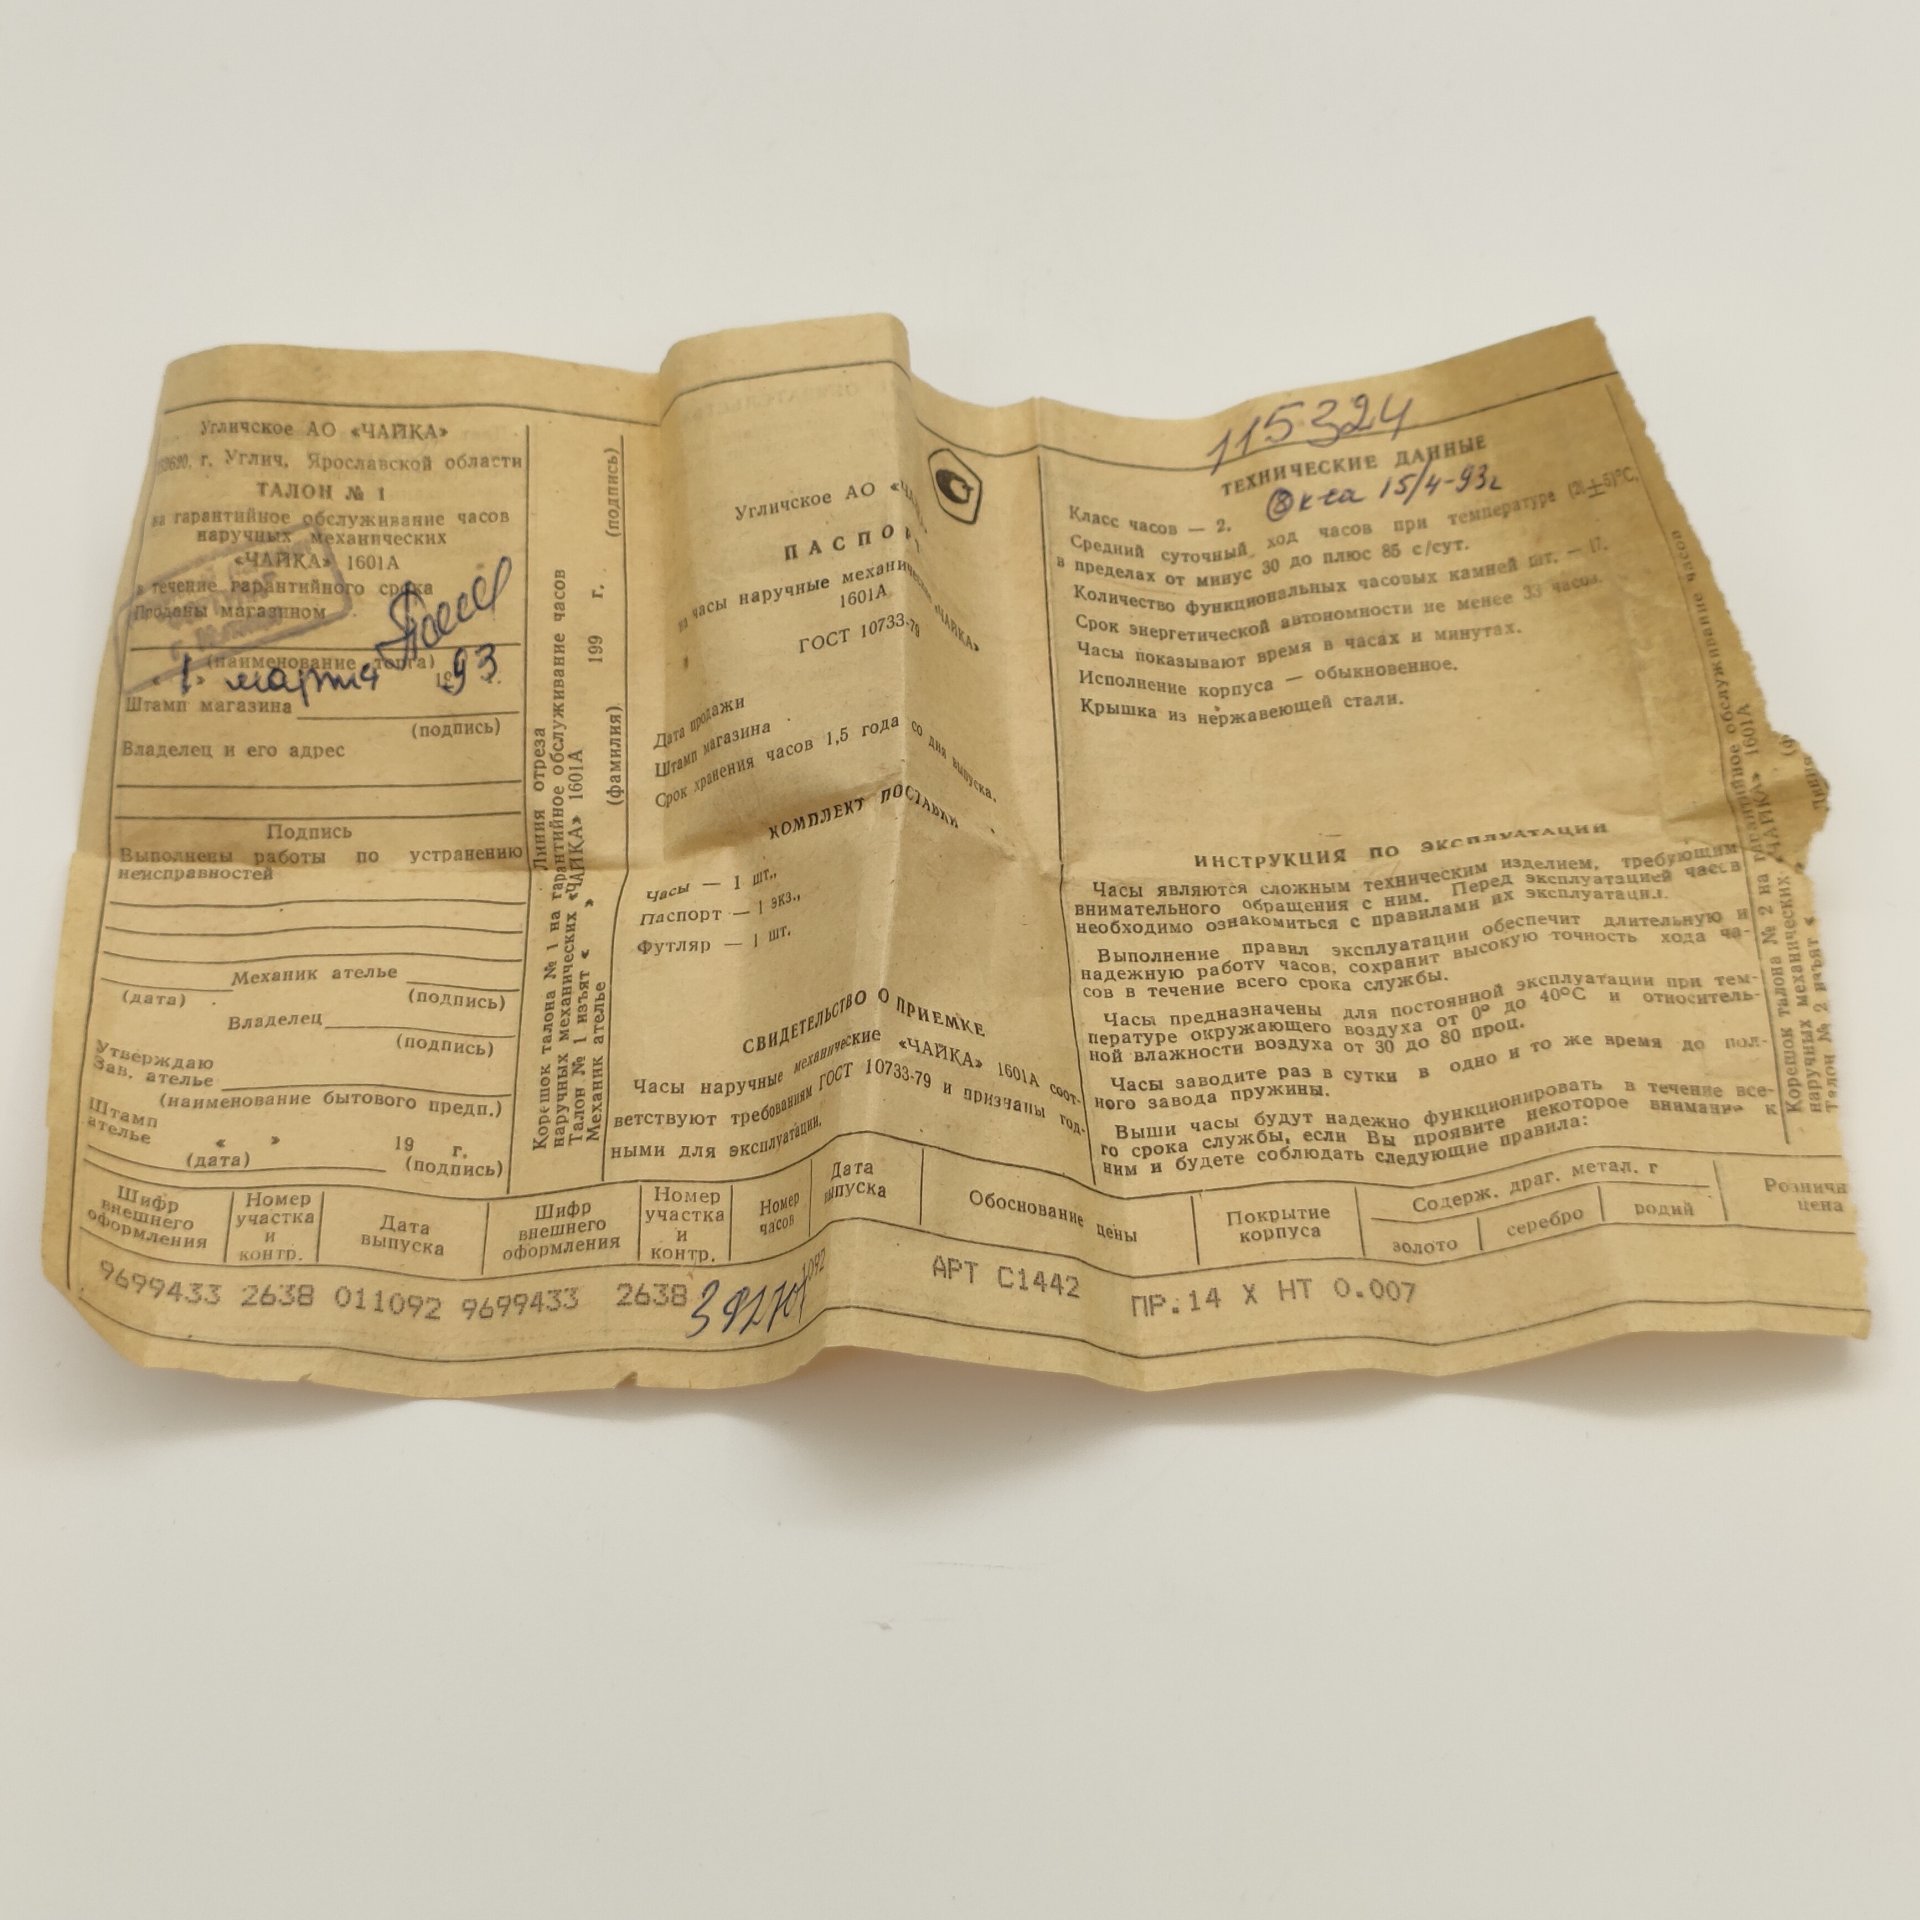 Угличское АО «ЧАЙКА»
г. Углич, Ярославской области
ТАЛОН № 1
на гарантийное обслуживание часов
наручных механических
«ЧАЙКА» 1601А
в течение гарантийного срока
Проданы магазином
(наименование торга)
« 1 » марта 1993 г.
Штамп магазина
(подпись)
Владелец и его адрес
Подпись
Выполнены работы по устранению
неисправностей
Механик ателье
(дата) (подпись)
Владелец
(подпись)
Утверждаю
Зав. ателье
(наименование бытового предп.)
Штамп
ателье « » 19 г.
(дата) (подпись)
Линия отреза
Корешок талона № 1 на гарантийное обслуживание часов
наручных механических «ЧАЙКА» 1601А
Талон № 1 изъят « » 199 г.
Механик ателье (фамилия) (подпись)
Угличское АО
ПАСПОРТ
на часы наручные механические «ЧАЙКА»
1601А
ГОСТ 10733-79
Дата продажи
Штамп магазина
Срок хранения часов 1,5 года со дня выпуска.
КОМПЛЕКТ ПОСТАВКИ
Часы — 1 шт.,
Паспорт — 1 экз.,
Футляр — 1 шт.
СВИДЕТЕЛЬСТВО О ПРИЕМКЕ
Часы наручные механические «ЧАЙКА» 1601А соот-
ветствуют требованиям ГОСТ 10733-79 и признаны год-
ными для эксплуатации.
115324
ТЕХНИЧЕСКИЕ ДАННЫЕ
15/4-93г
Класс часов — 2.
Средний суточный ход часов при температуре (20±5)°С,
в пределах от минус 30 до плюс 85 с/сут.
Количество функциональных часовых камней шт. — 17.
Срок энергетической автономности не менее 33 часов.
Часы показывают время в часах и минутах.
Исполнение корпуса — обыкновенное.
Крышка из нержавеющей стали.
ИНСТРУКЦИЯ ПО ЭКСПЛУАТАЦИИ
Часы являются сложным техническим изделием, требующим
внимательного обращения с ним. Перед эксплуатацией часов
необходимо ознакомиться с правилами их эксплуатации.
Выполнение правил эксплуатации обеспечит длительную и
надежную работу часов, сохранит высокую точность хода ча-
сов в течение всего срока службы.
Часы предназначены для постоянной эксплуатации при тем-
пературе окружающего воздуха от 0° до 40°С и относитель-
ной влажности воздуха от 30 до 80 проц.
Часы заводите раз в сутки в одно и то же время до пол-
ного завода пружины.
Выши часы будут надежно функционировать в течение все-
го срока службы, если Вы проявите некоторое внимание к
ним и будете соблюдать следующие правила:
Корешок талона № 2 на гарантийное обслуживание часов
наручных механических «ЧАЙКА» 1601А
Талон № 2 изъят «
Линия
Шифр внешнего оформления
Номер участка и контр.
Дата выпуска
Шифр внешнего оформления
Номер участка и контр.
Номер часов
Дата выпуска
Обоснование цены
Покрытие корпуса
Содерж. драг. метал. г
золото серебро родий
Розничн
цена
9699433 2638 011092 9699433 2638 1092 АРТ С1442 ПР.14 Х НТ 0.007